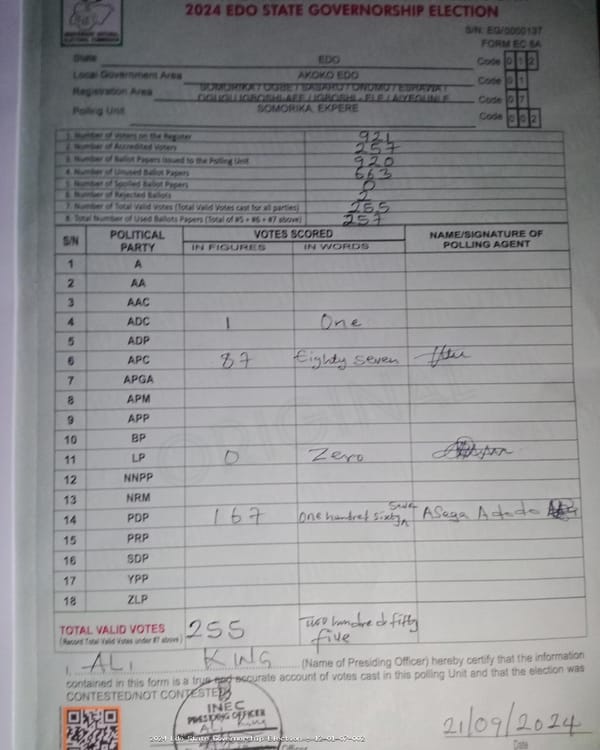 2024 EDO STATE GOVERNORSHIP ELECTION
S/N: EG/0000137
FORM EC 8A
State EDO Code 0 1 2
Local Government Area AKOKO EDO Code 0 1
Registration Area SOMORIKA / OGBE / SASARO / ONUMU / ESHAWA / Code 0 7
OGUGU IGBOSHI-AFE / IGBOSHI - ELE / AIYEGUNLE
Polling Unit SOMORIKA, EKPERE Code 0 0 2
1. Number of Voters on the Register 921
2. Number of Accredited Voters 257
3. Number of Ballot Papers Issued to the Polling Unit 920
4. Number of Unused Ballot Papers 663
5. Number of Spoiled Ballot Papers 0
6. Number of Rejected Ballots 2
7. Number of Total Valid Votes (Total Valid Votes cast for all parties) 255
8. Total Number of Used Ballots Papers (Total of #5 + #6 + #7 above) 257
S/N POLITICAL PARTY VOTES SCORED NAME/SIGNATURE OF POLLING AGENT
IN FIGURES IN WORDS
1 A
2 AA
3 AAC
4 ADC 1 One
5 ADP
6 APC 87 Eighty Seven
7 APGA
8 APM
9 APP
10 BP
11 LP 0 Zero
12 NNPP
13 NRM
14 PDP 167 One hundred sixty seven Asaga Adodo
15 PRP
16 SDP
17 YPP
18 ZLP
TOTAL VALID VOTES 255 Two hundred fifty
(Record Total Valid Votes under #7 above) five
I, ALI KING (Name of Presiding Officer) hereby certify that the information
contained in this form is a true and accurate account of votes cast in this polling Unit and that the election was
CONTESTED/NOT CONTESTED
INEC
PRESIDING OFFICER
21/09/2024
Date
2024 Edo State Governorship Election - 12-01-07-002